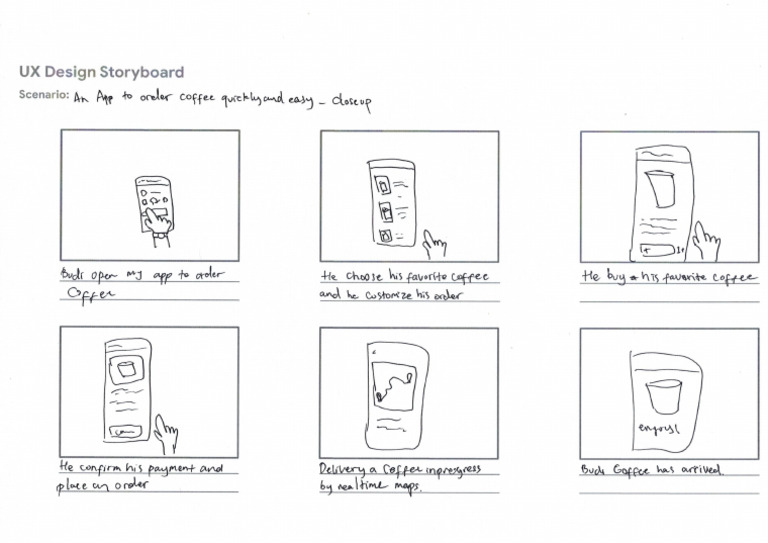 UX Design Storyboard
Scenario: An App to order coffee quickly and easy - closeup
Budi open my app to order
Coffee
He choose his favorite coffee
and he customize his order
He buy his favorite coffee
He confirm his payment and
place an order
Delivery a Coffee inprogress
by realtime maps.
enjoy!
Budi Coffee has arrived.